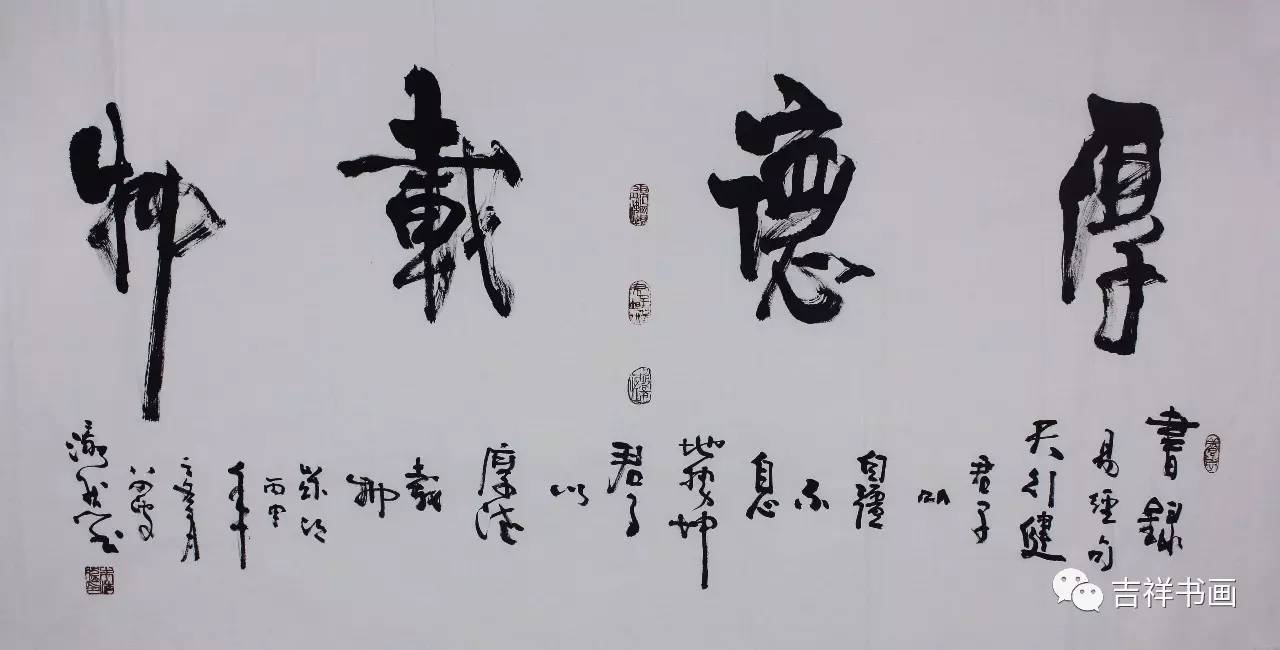 厚德載物
書錄
易經句
天行健
君子
以
自彊
不
息
地勢坤
君子
以
厚德
載
物
歲次
丙申
年
吉祥书画